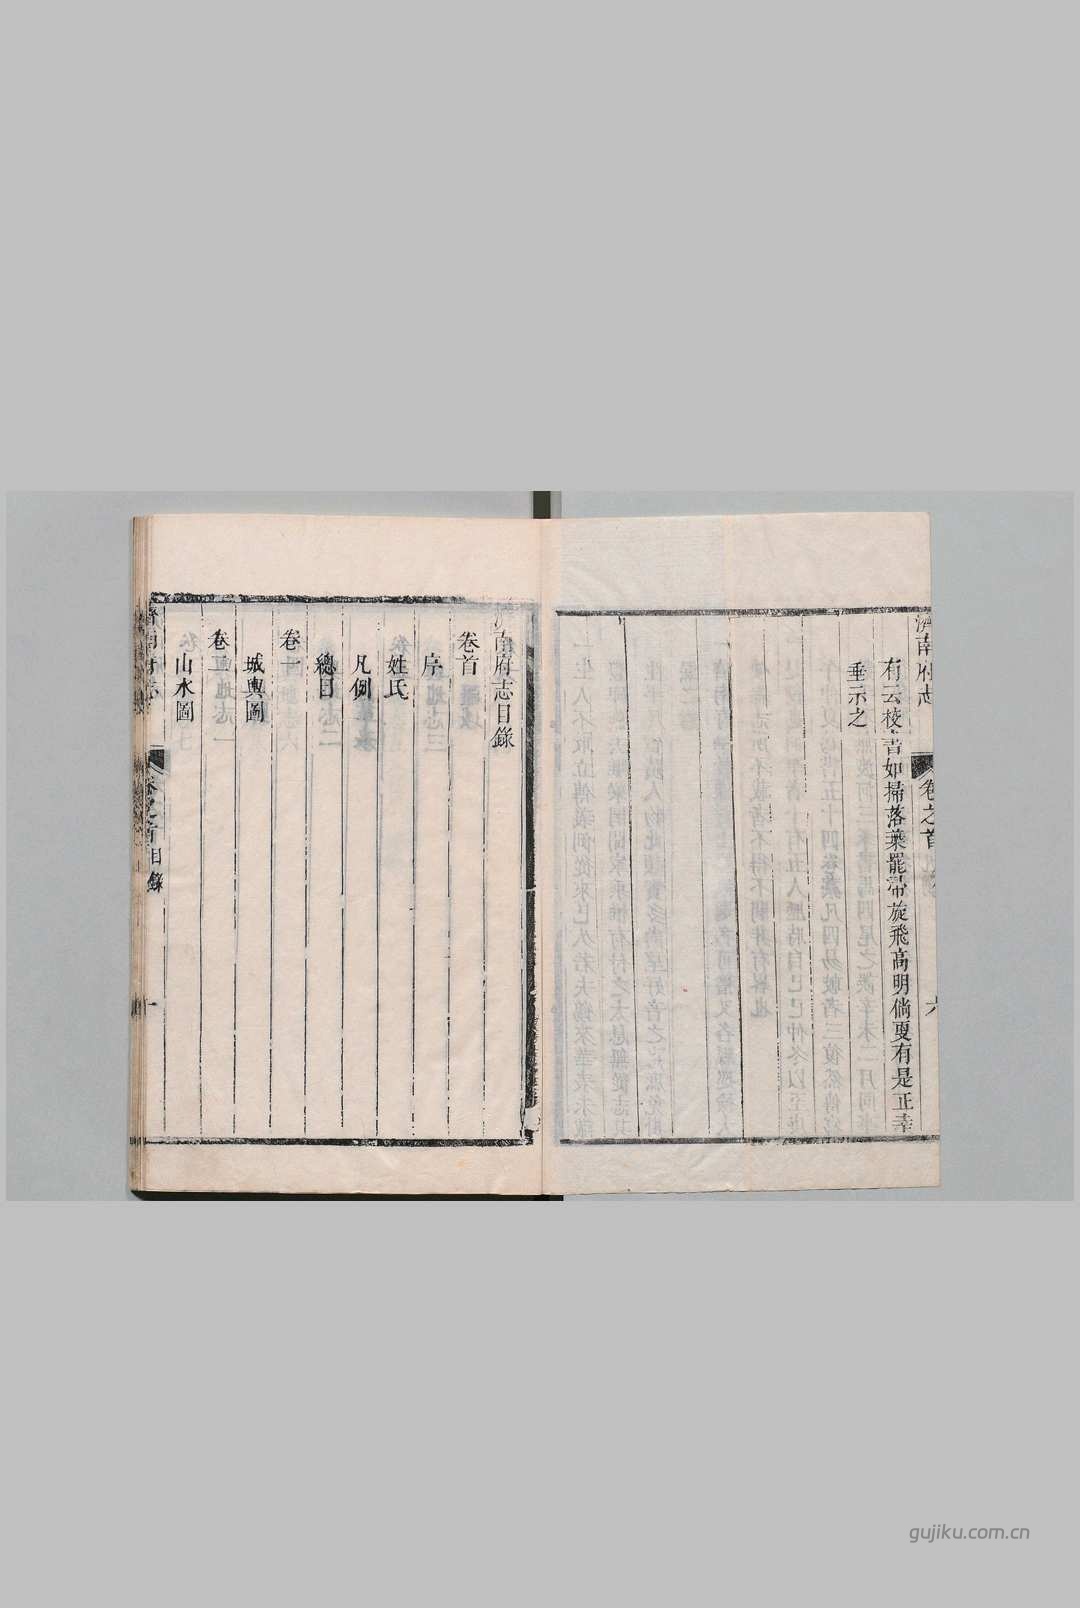 濟南府志
卷之首
六
有云校書如掃落葉罷帚旋飛高明倘更有是正幸
垂示之
濟南府志目錄
卷首
序
姓氏
凡例
總目
卷一
城輿圖
卷二
山水圖
濟南府志
卷之首 目錄
一
gujiku.com.cn